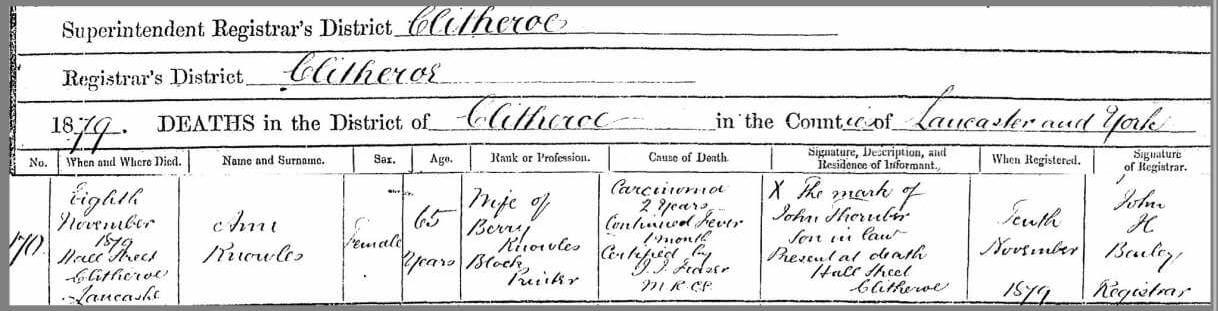 Superintendent Registrar's District Clitheroe
Registrar's District Clitheroe
1879. DEATHS in the District of Clitheroe in the Counties of Lancaster and York
No. When and Where Died. Name and Surname. Sex. Age. Rank or Profession. Cause of Death. Signature, Description, and Residence of Informant. When Registered. Signature of Registrar.
170
Eighth
November
1879
Hall Street
Clitheroe
Lancashe
Ann
Knowles
Female
65
Years
Wife of
Berry
Knowles
Block
Printer
Carcinoma
2 Years
Continued Fever
1 month
Certified by
Fraser
M R C P
X The mark of
John Thornber
Son in law
Present at death
Hall Street
Clitheroe
Tenth
November
1879
John
H
Registrar